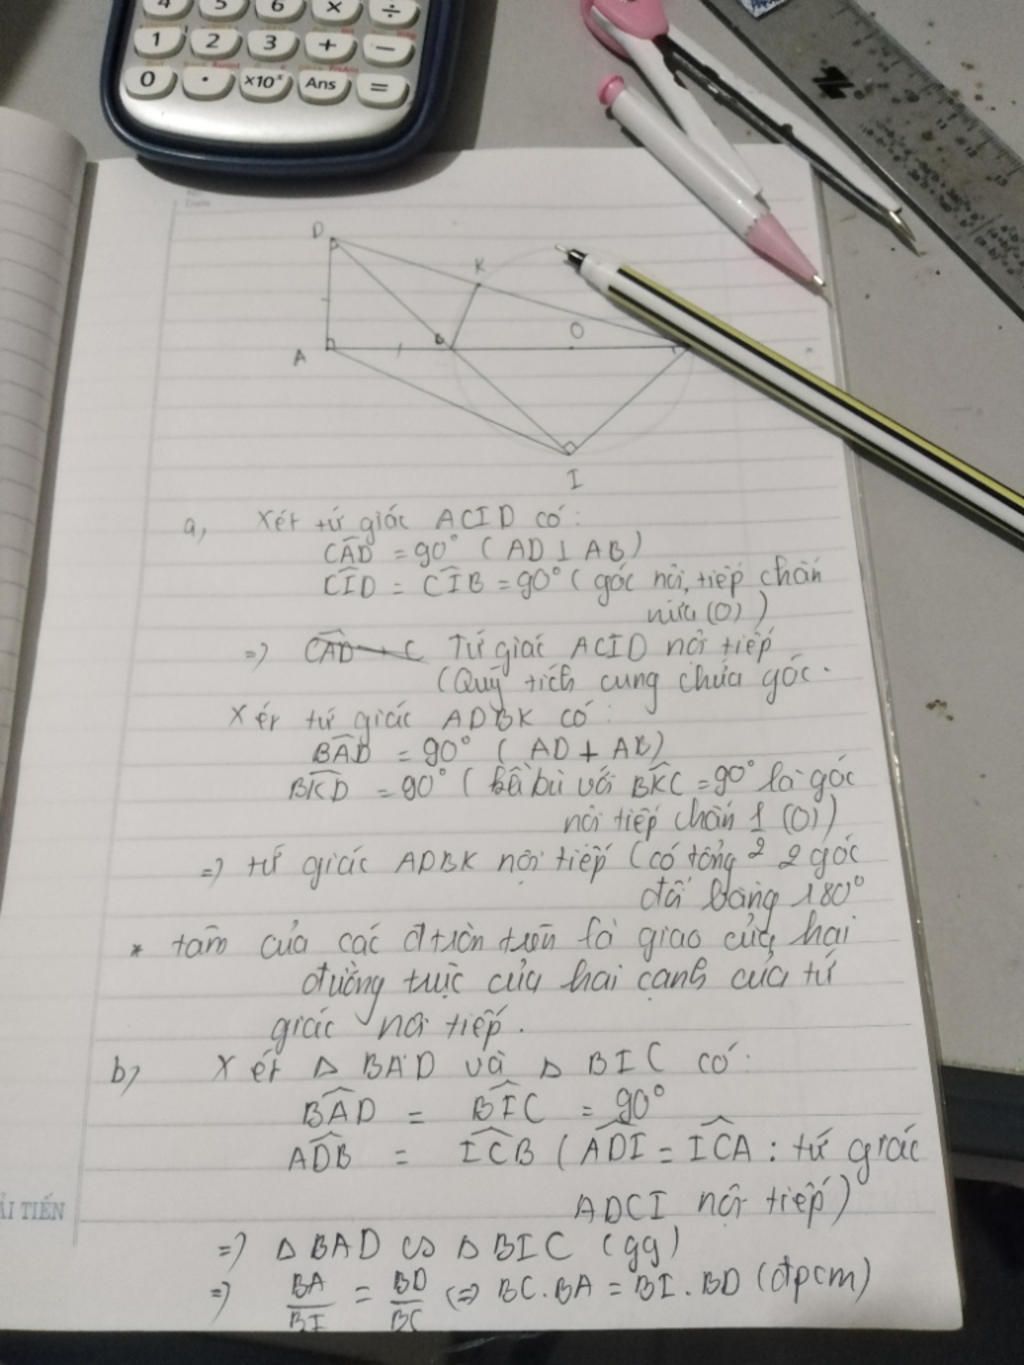 4 5 6 × ÷
1 2 3 + −
0 · ×10ˣ Ans =
D
K
A
B
O
I
a, Xét tứ giác ACID có:
CÂD = 90° (AD ⊥ AB)
CÎD = CÎB = 90° (góc nội tiếp chắn
nửa (O))
=> CÂD + C Tứ giác ACID nội tiếp
(Quỹ tích cung chứa góc.
Xét tứ giác ADBK có:
BÂD = 90° (AD + AB)
BK̂D = 90° (kề bù với BK̂C = 90° là góc
nội tiếp chắn 1 (O))
=> tứ giác ADBK nội tiếp (có tổng 2 2 góc
đối bằng 180°
* tâm của các đtròn trên là giao của hai
đường trực của hai cạnh của tứ
giác nội tiếp.
b) Xét △ BAD và △ BIC có:
BÂD = BÎC = 90°
AD̂B = IĈB (AD̂I = IĈA : tứ giác
ADCI nội tiếp)
=> △ BAD ∽ △ BIC (gg)
=> BA/BI = BD/BC (=> BC.BA = BI.BD (đpcm)
ẢI TIẾN